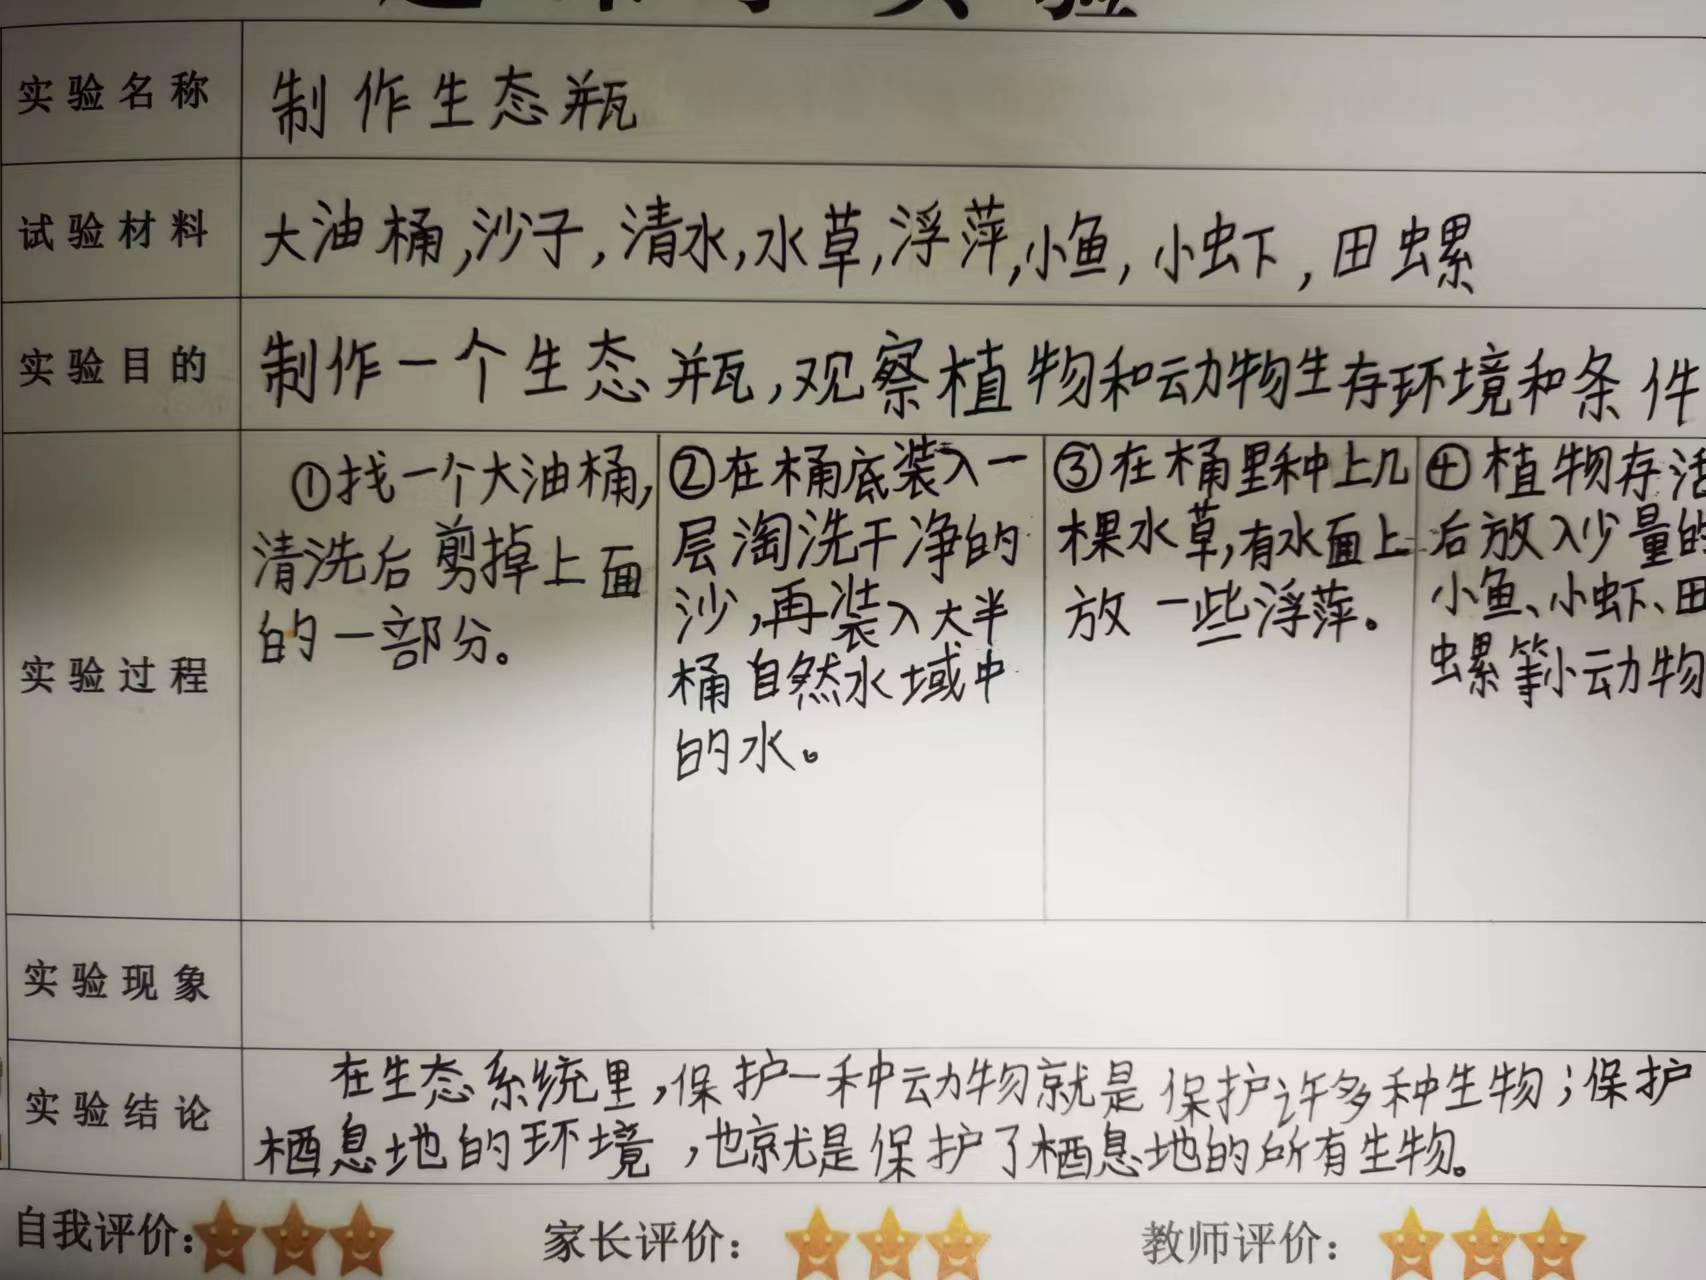 实验
实验名称 制作生态瓶
试验材料 大油桶,沙子,清水,水草,浮萍,小鱼,小虾,田螺
实验目的 制作一个生态瓶,观察植物和动物生存环境和条件
实验过程
①找一个大油桶,
清洗后剪掉上面
的一部分。
②在桶底装入一
层淘洗干净的
沙,再装入大半
桶自然水域中
的水。
③在桶里种上几
棵水草,有水面上
放一些浮萍。
④植物存活
后放入少量的
小鱼、小虾、田
螺等小动物
实验现象
实验结论
在生态系统里,保护一种动物就是保护许多种生物;保护
栖息地的环境,也就是保护了栖息地的所有生物。
自我评价: 家长评价: 教师评价: